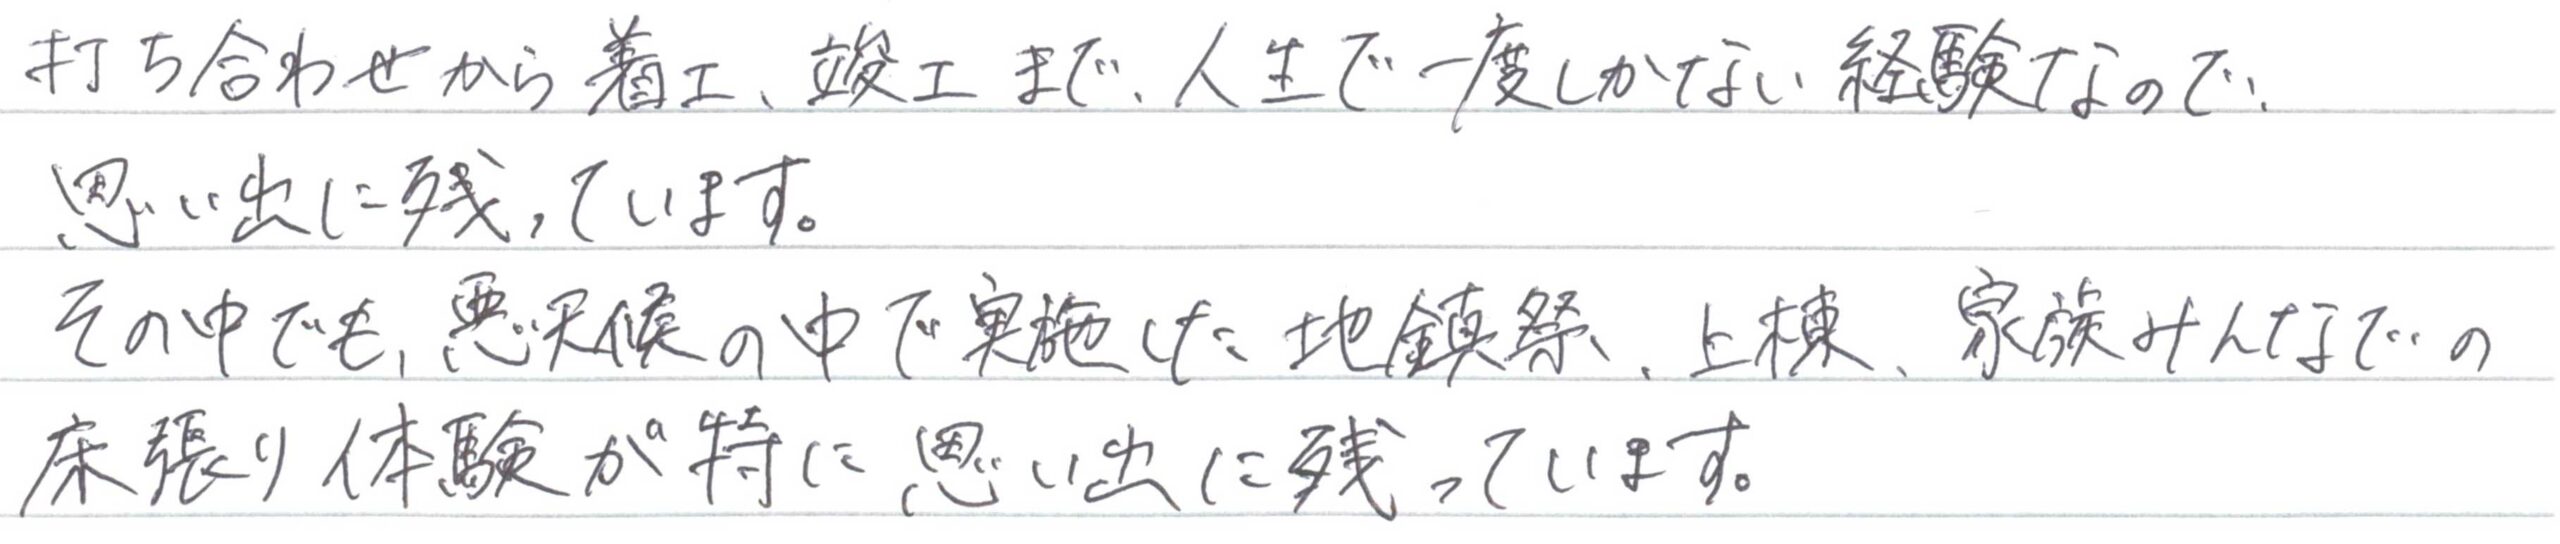 打ち合わせから着工、竣工まで、人生で一度しかない経験なので、
思い出に残っています。
その中でも、悪天候の中で実施した地鎮祭、上棟、家族みんなでの
床張り体験が特に思い出に残っています。